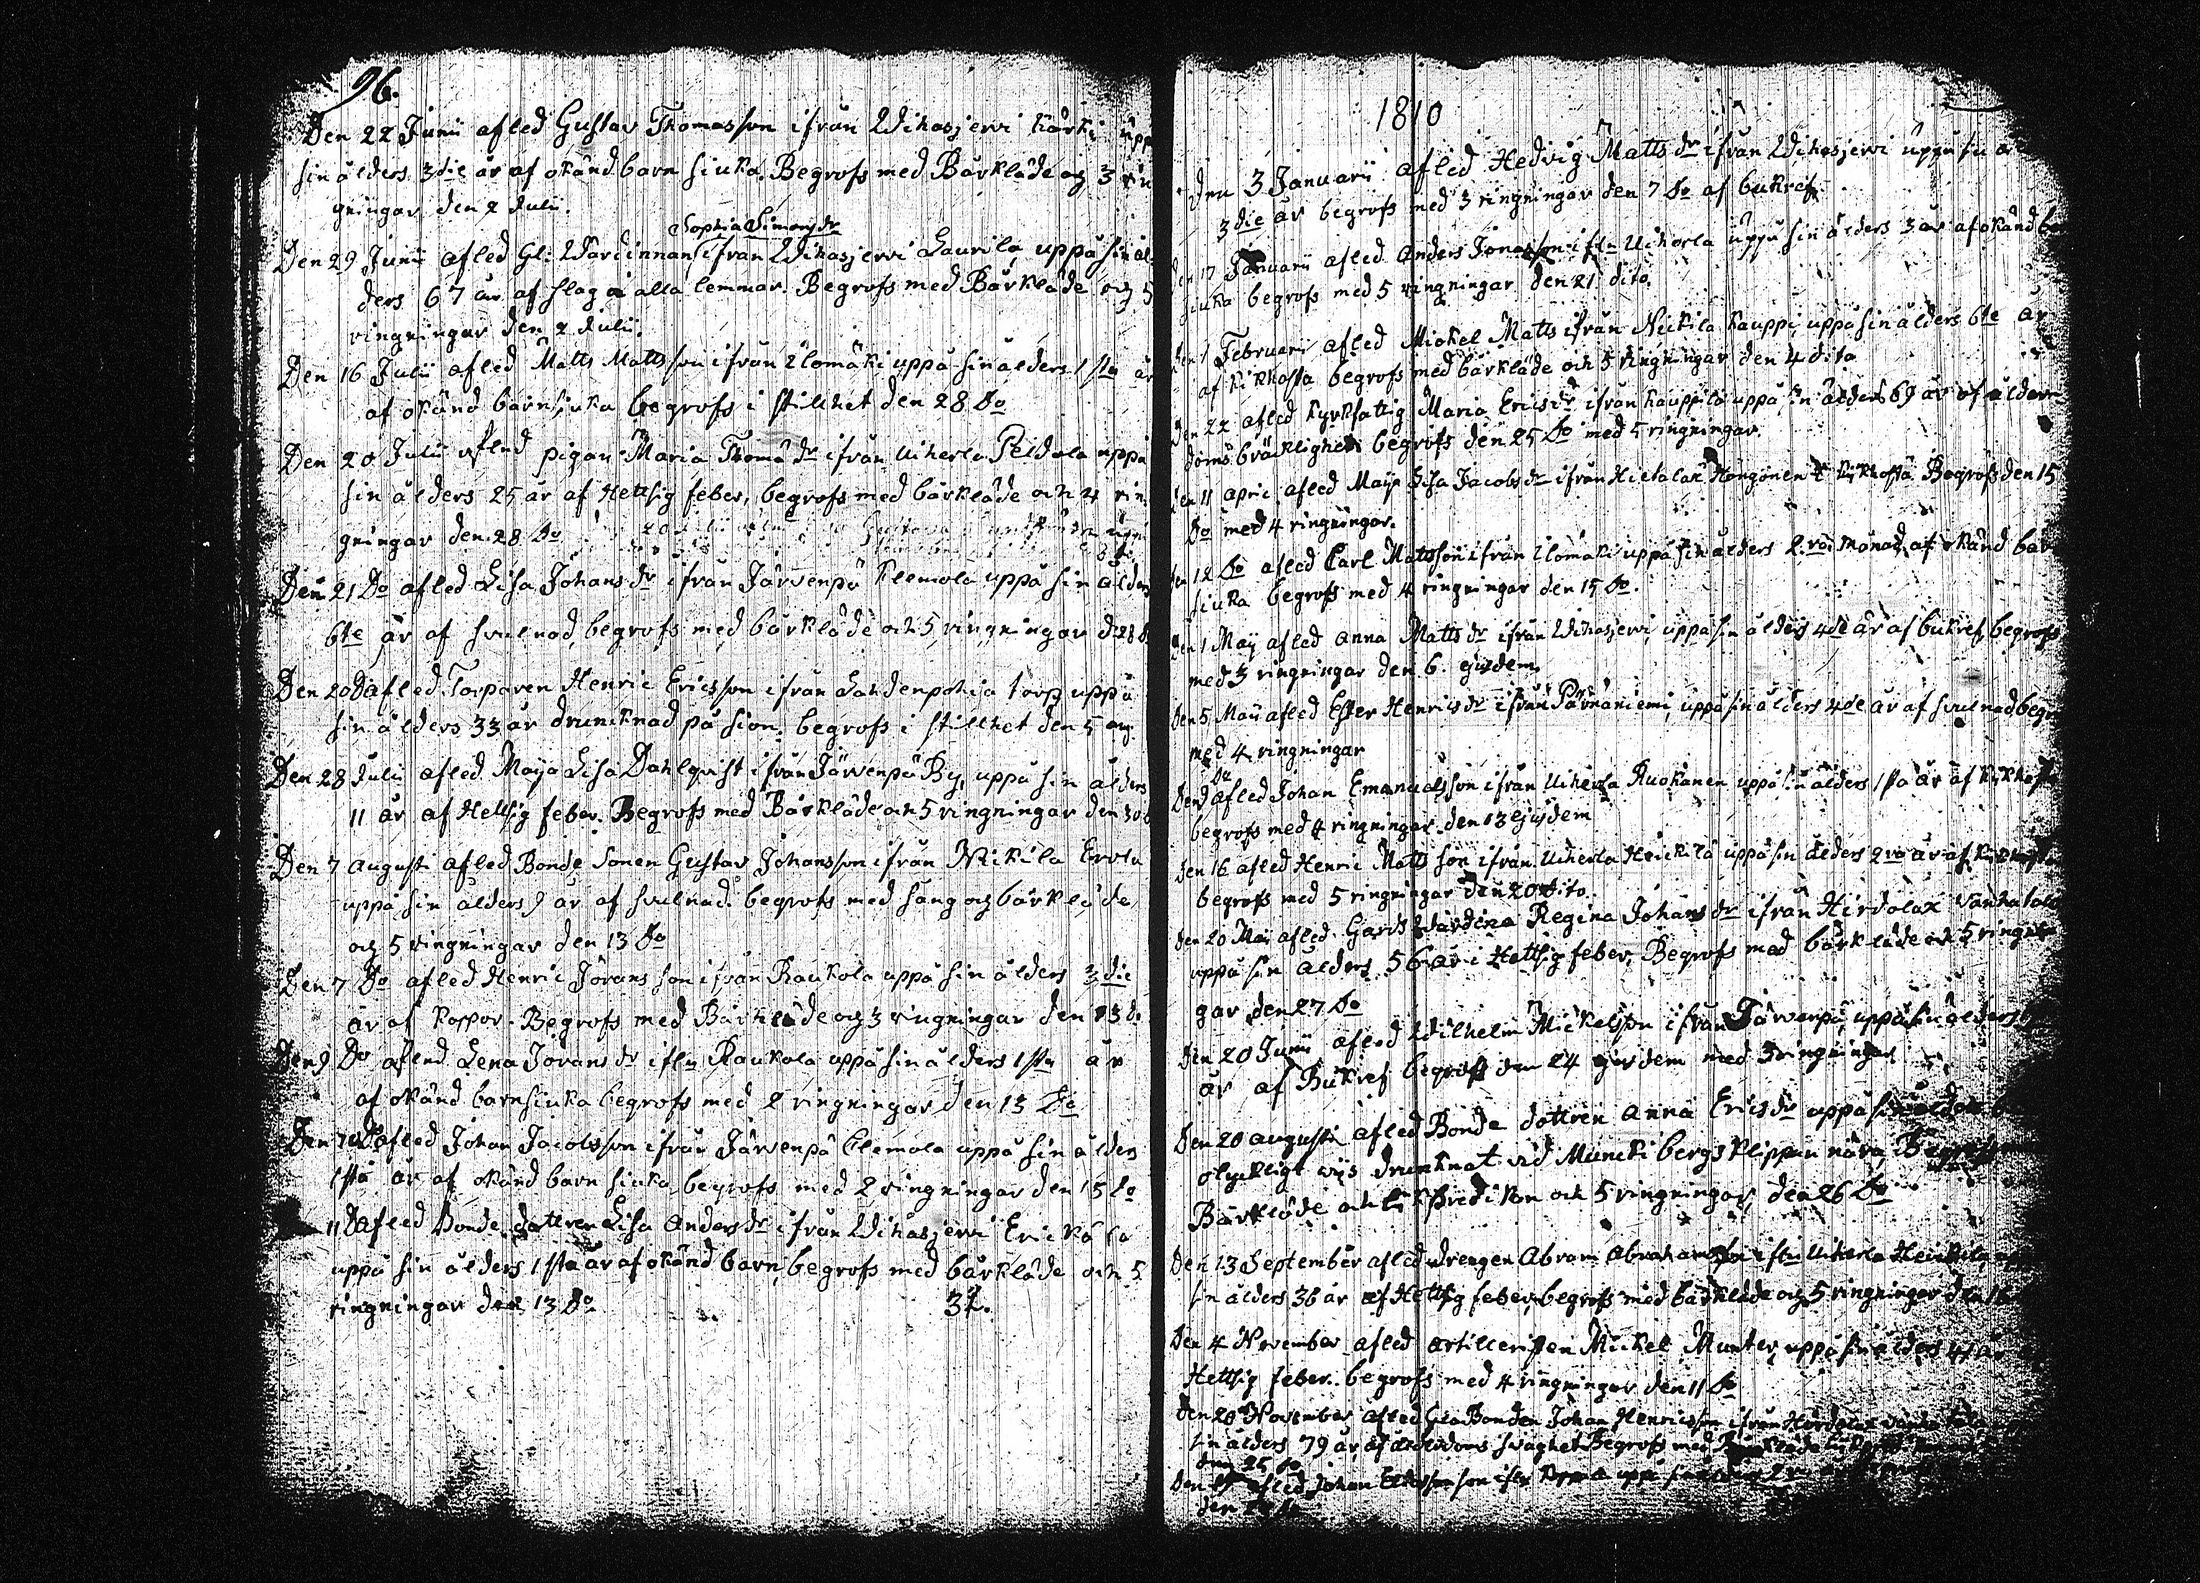 96.
Den 22 Junii afled Gustav Thomasson ifrån Wihasjervi Kårki upp
sin ålders 3die år af okänd barn siuka. Begrofs med Bårkläde og 3 rin
gningar den 2 Julii.
Sophia Simonsdr
Den 29 Junii afled Gl: Wärdinnan ifrån Wihasjervi Laurila uppå sin ål
ders 67 år af slag å alla lemmar. Begrofs med Bårkläde och 5
ringningar den 2 Julii.
Den 16 Julii afled Matts Mattsson ifrån Ilomäki uppå sin ålders 1sta år
af okänd barnsiuka begrofs i stillhet den 28 Do
Den 20 Julii afled pigan Maria Thomædr ifrån Uiherla Peldola uppå
sin ålders 25 år af Hettsig feber, begrofs med bårkläde och 4 rin
gningar den 28 Do
Den 21 Do afled Lisa Johansdr ifrån Järvenpä Klemola uppå sin ålders
6te år af svulnad, begrofs med bårkläde och 5 ringningar d. 28 d
Den 20 Do afled Torparen Henric Ericsson ifrån Lahdenpohia torp uppå
sin ålders 33 år druncknad på sion. begrofs i stillhet den 5 aug
Den 28 Julii afled Maja Lisa Dahlqvist ifrån Järvenpä By, uppå sin ålders
11 år af Hettsig feber. Begrofs med Bårkläde och 5 ringningar den 30
Den 7 Augusti afled Bonde Sonen Gustav Johansson ifrån Nikila Erola
uppå sin ålders 9 år af svulnad. begrofs med sång og bårkläde
og 5 ringningar den 13 Do
Den 7 Do afled Henric Jöransson ifrån Raukola uppå sin ålders 3die
år af Koppor. Begrofs med Bårkläde og 3 ringningar den 13 d.
Den 9 Do afled Lena Jöransdr ifrn Raukola uppå sin ålders 1sta år
af okänd barnsiuka begrofs med 2 ringningar den 13 Do
Den 10 Do afled Johan Jacobsson ifrån Järvenpä Klemola uppå sin ålders
1sta år af okänd barn siuka begrofs med 2 ringningar den 15 Do
11 Do afled Bonde dottren Lisa Andersdr ifrån Wihasjervi Erickä la
uppå sin ålders 1sta år af okänd barn, begrofs med bårkläde och 5
ringningar den 13 Do
32.
1810
Den 3 Januarii afled Hedvig Mattsdr ifrån Wihasjervi uppå sin
3die år begrofs med 3 ringningar den 7 Do af bukref
17 Januarii afled Anders Jonasson ifrn Uiherla uppå sin ålders 3 år af okänd
siuka begrofs med 5 ringningar den 21 dito.
den 1 Februarii afled Mickel Matts ifrån Nickila Kauppi uppå sin ålders 6te år
af Kikhosta begrofs med bårkläde och 5 ringningar den 4 dito
den 22 afled Kyrkfattig Maria Ericsdr ifrån Kauppila uppå sin ålders 69 år af ålder
doms bräcklighet begrofs den 25 Do med 5 ringningar.
den 11 April afled Maja Lisa Jacobsdr ifrån Hietalax Hongonen Kikhosta Begrofs den 15
Do med 4 ringningar.
12 Do afled Carl Mattsson ifrån Ilomäki uppå sin ålders 2 månad af okänd bar
siuka begrofs med 4 ringningar den 15 Do.
den 1 May afled Anna Mattsdr ifrån Wihasjervi uppå sin ålders 4de år af bukref, begrofs
med 3 ringningar den 6. ejusdem
Den 5 Maii afled Ester Henricsdr ifrån Pärnäniemi, uppå sin ålders 4de år af svulnad begr
med 4 ringningar
Den 9 Do afled Johan Emanuelsson ifrån Uiherla Ruokanen uppå sin ålders 1sta år af Kikhosta
begrofs med 4 ringningar den 13 ejusdem
den 16 afled Henric Matts son ifrån Uiherla Heickilä uppå sin ålders 2 år af
begrofs med 5 ringningar den 20 dito.
den 20 Maii afled Gårds Wärdina Regina Johansdr ifrån Hirdolax Vanhatalo
uppå sin ålders 56 år i Hettsig feber, Begrofs med bårkläde och 5 ringnin
gar den 27 Do
Den 20 Junii afled Wilhelm Mickelsson ifrån Järvenpä uppå sin ålders
år af Bukref begrofs den 24 ejusdem med 3 ringningar
Den 20 augusti afled Bonde dottren Anna Ericsdr uppå sin ålders
olyckligt wijs drunknat vid Muncki bergs klippan nära. Begrofs
Bårkläde och likpredikan och 5 ringningar den 26 Do
Den 13 September afled drengen Abram Abrahamsson ifrn Uiherla Heickilä
sin ålders 36 år af Hettsig feber begrofs med bårkläde og 5 ringningar den
Den 4 November afled artilleristen Mickel Munter uppå sin ålders 41 år
Hettsig feber. begrofs med 4 ringningar den 11 Do
Den 20 November afled Gla Bonden Johan Henricsson ifrån Hirdolax Vanhatalo
sin ålders 79 år af ålderdoms svaghet Begrofs med Bårkläde
den 25 Do
Den afled Johan son ifrn uppå sin ålders 2
den